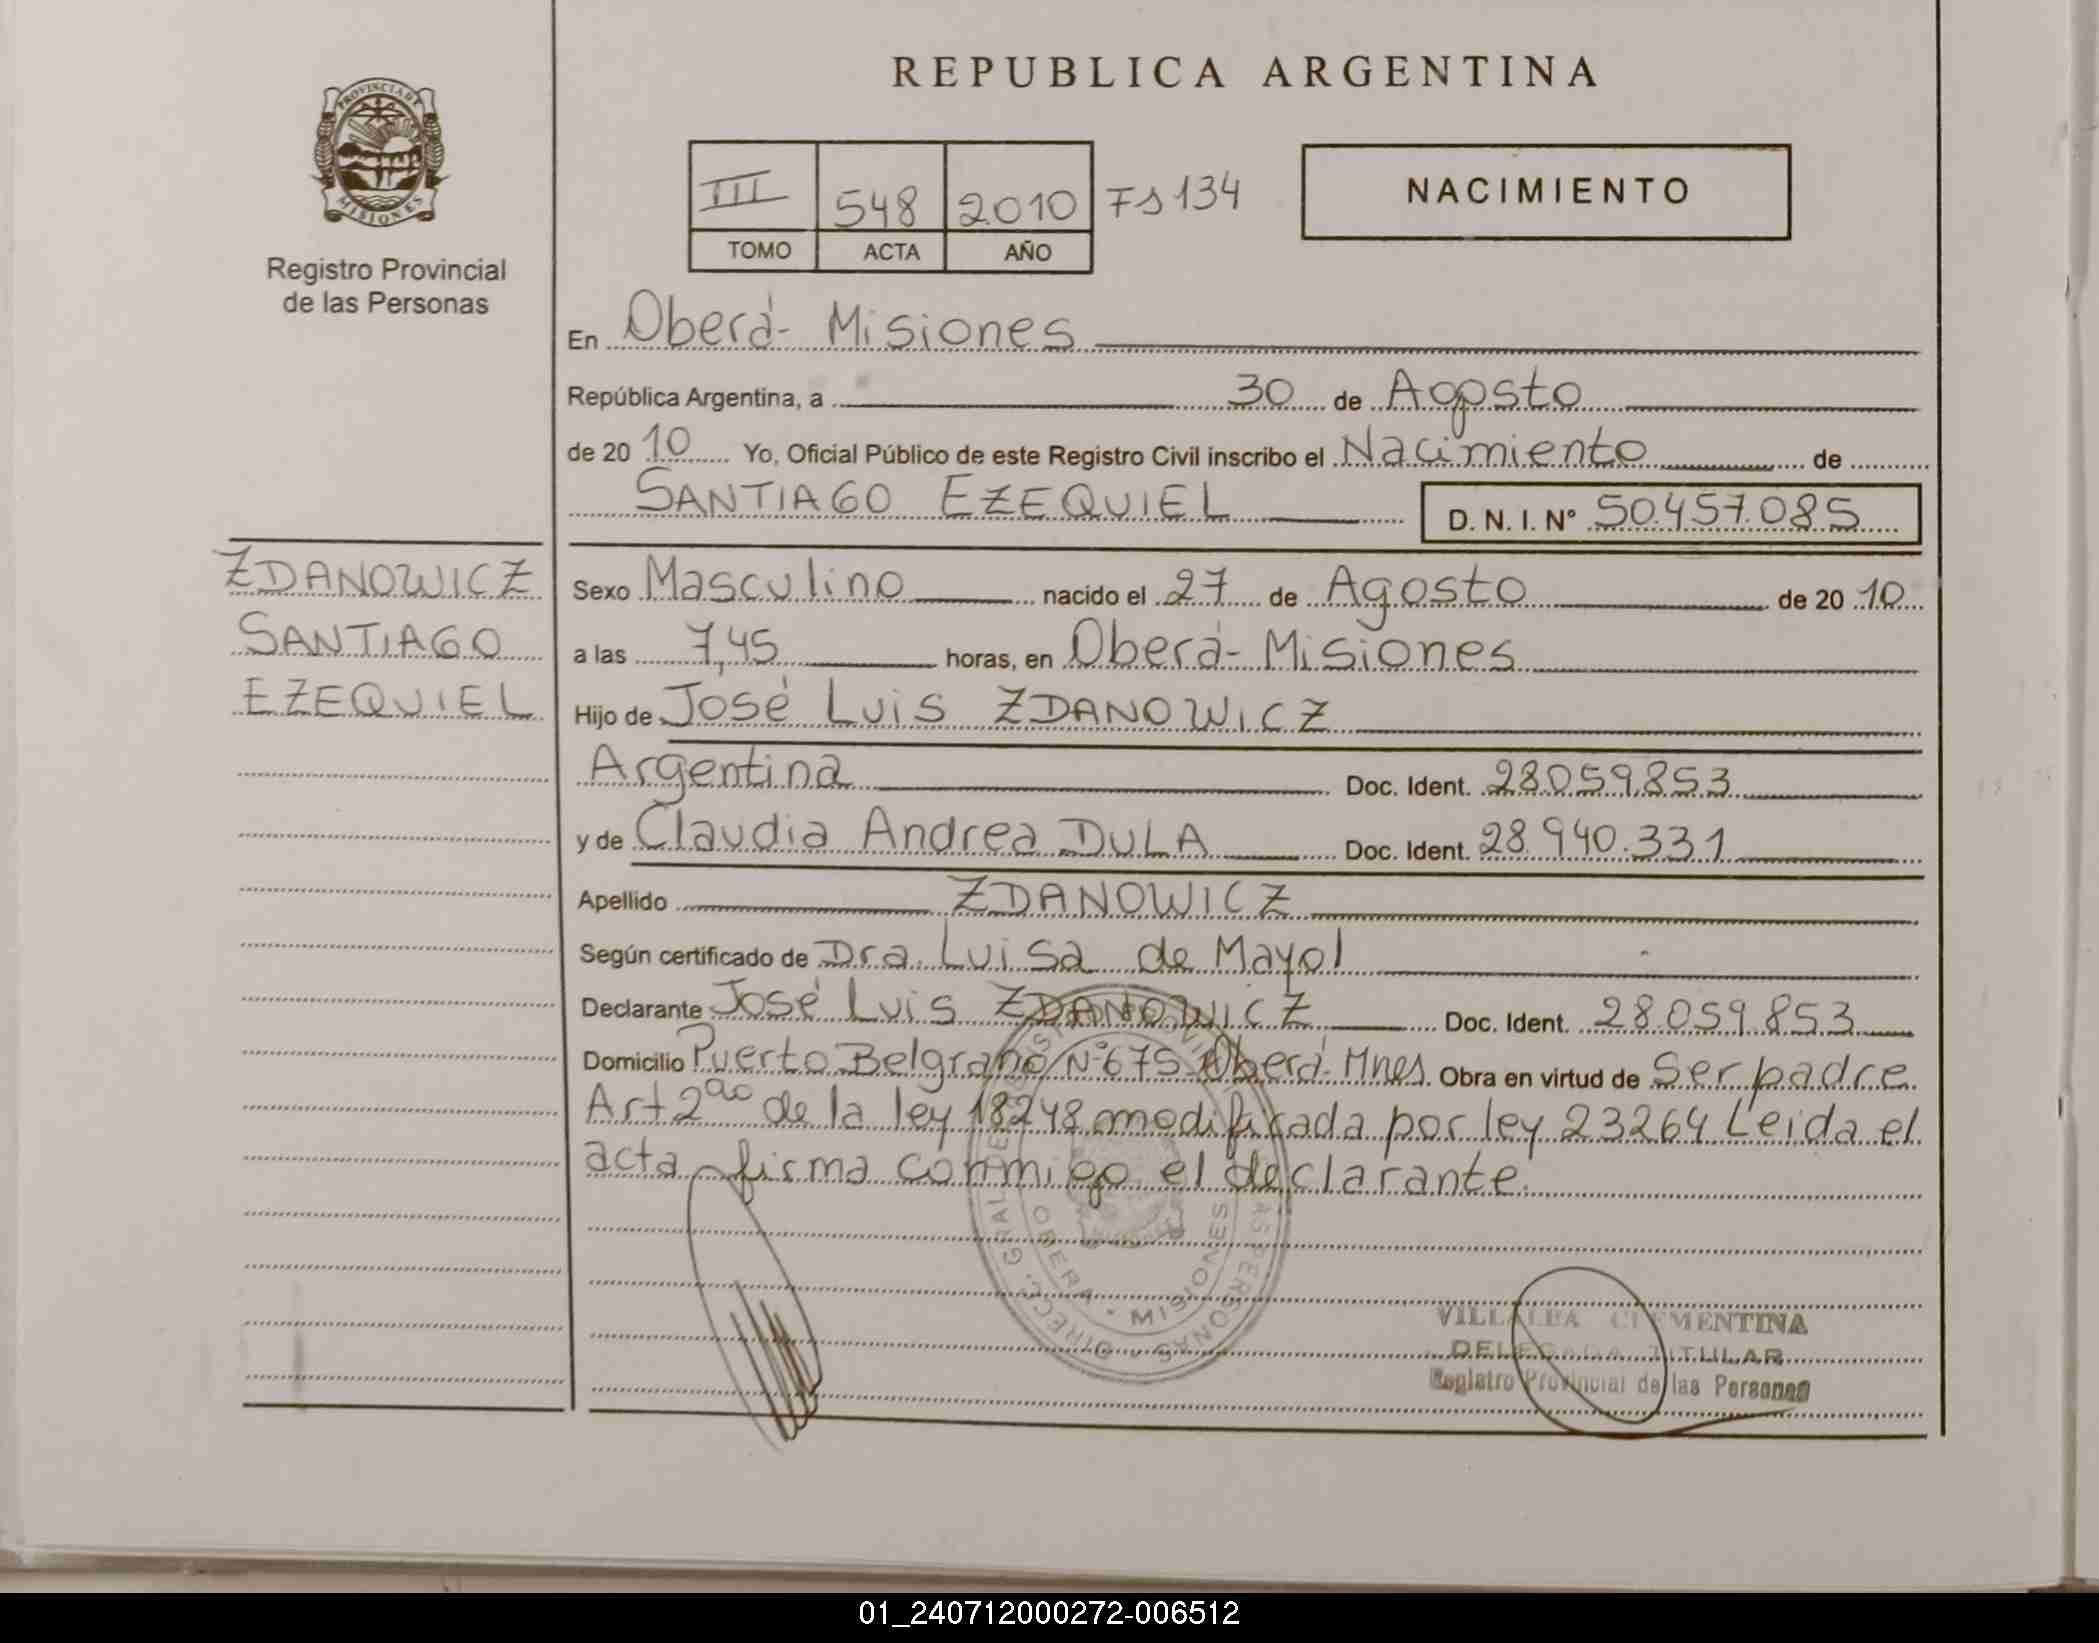 REPUBLICA ARGENTINA
PROVINCIA DE MISIONES
Registro Provincial
de las Personas
III 548 2010 Fs 134
TOMO ACTA AÑO
NACIMIENTO
En Oberá - Misiones
República Argentina, a 30 de Agosto
de 2010 Yo, Oficial Público de este Registro Civil inscribo el Nacimiento de
SANTIAGO EZEQUIEL D. N. I. N° 50.457.085
ZDANOWICZ
SANTIAGO
EZEQUIEL
Sexo Masculino nacido el 27 de Agosto de 2010
a las 7,45 horas, en Oberá - Misiones
Hijo de José Luis ZDANOWICZ
Argentina Doc. Ident. 28.059.853
y de Claudia Andrea DULA Doc. Ident. 28.940.331
Apellido ZDANOWICZ
Según certificado de Dra. Luisa de Mayol
Declarante José Luis ZDANOWICZ Doc. Ident. 28.059.853
Domicilio Puerto Belgrano N° 675 Oberá - Mnes. Obra en virtud de Ser padre
Art 2do de la ley 18248 modificada por ley 23264 Leida el
acta firma conmigo el declarante.
OBERA - MISIONES
VILLALBA CLEMENTINA
DELEGADA TITULAR
Registro Provincial de las Personas
01_240712000272-006512